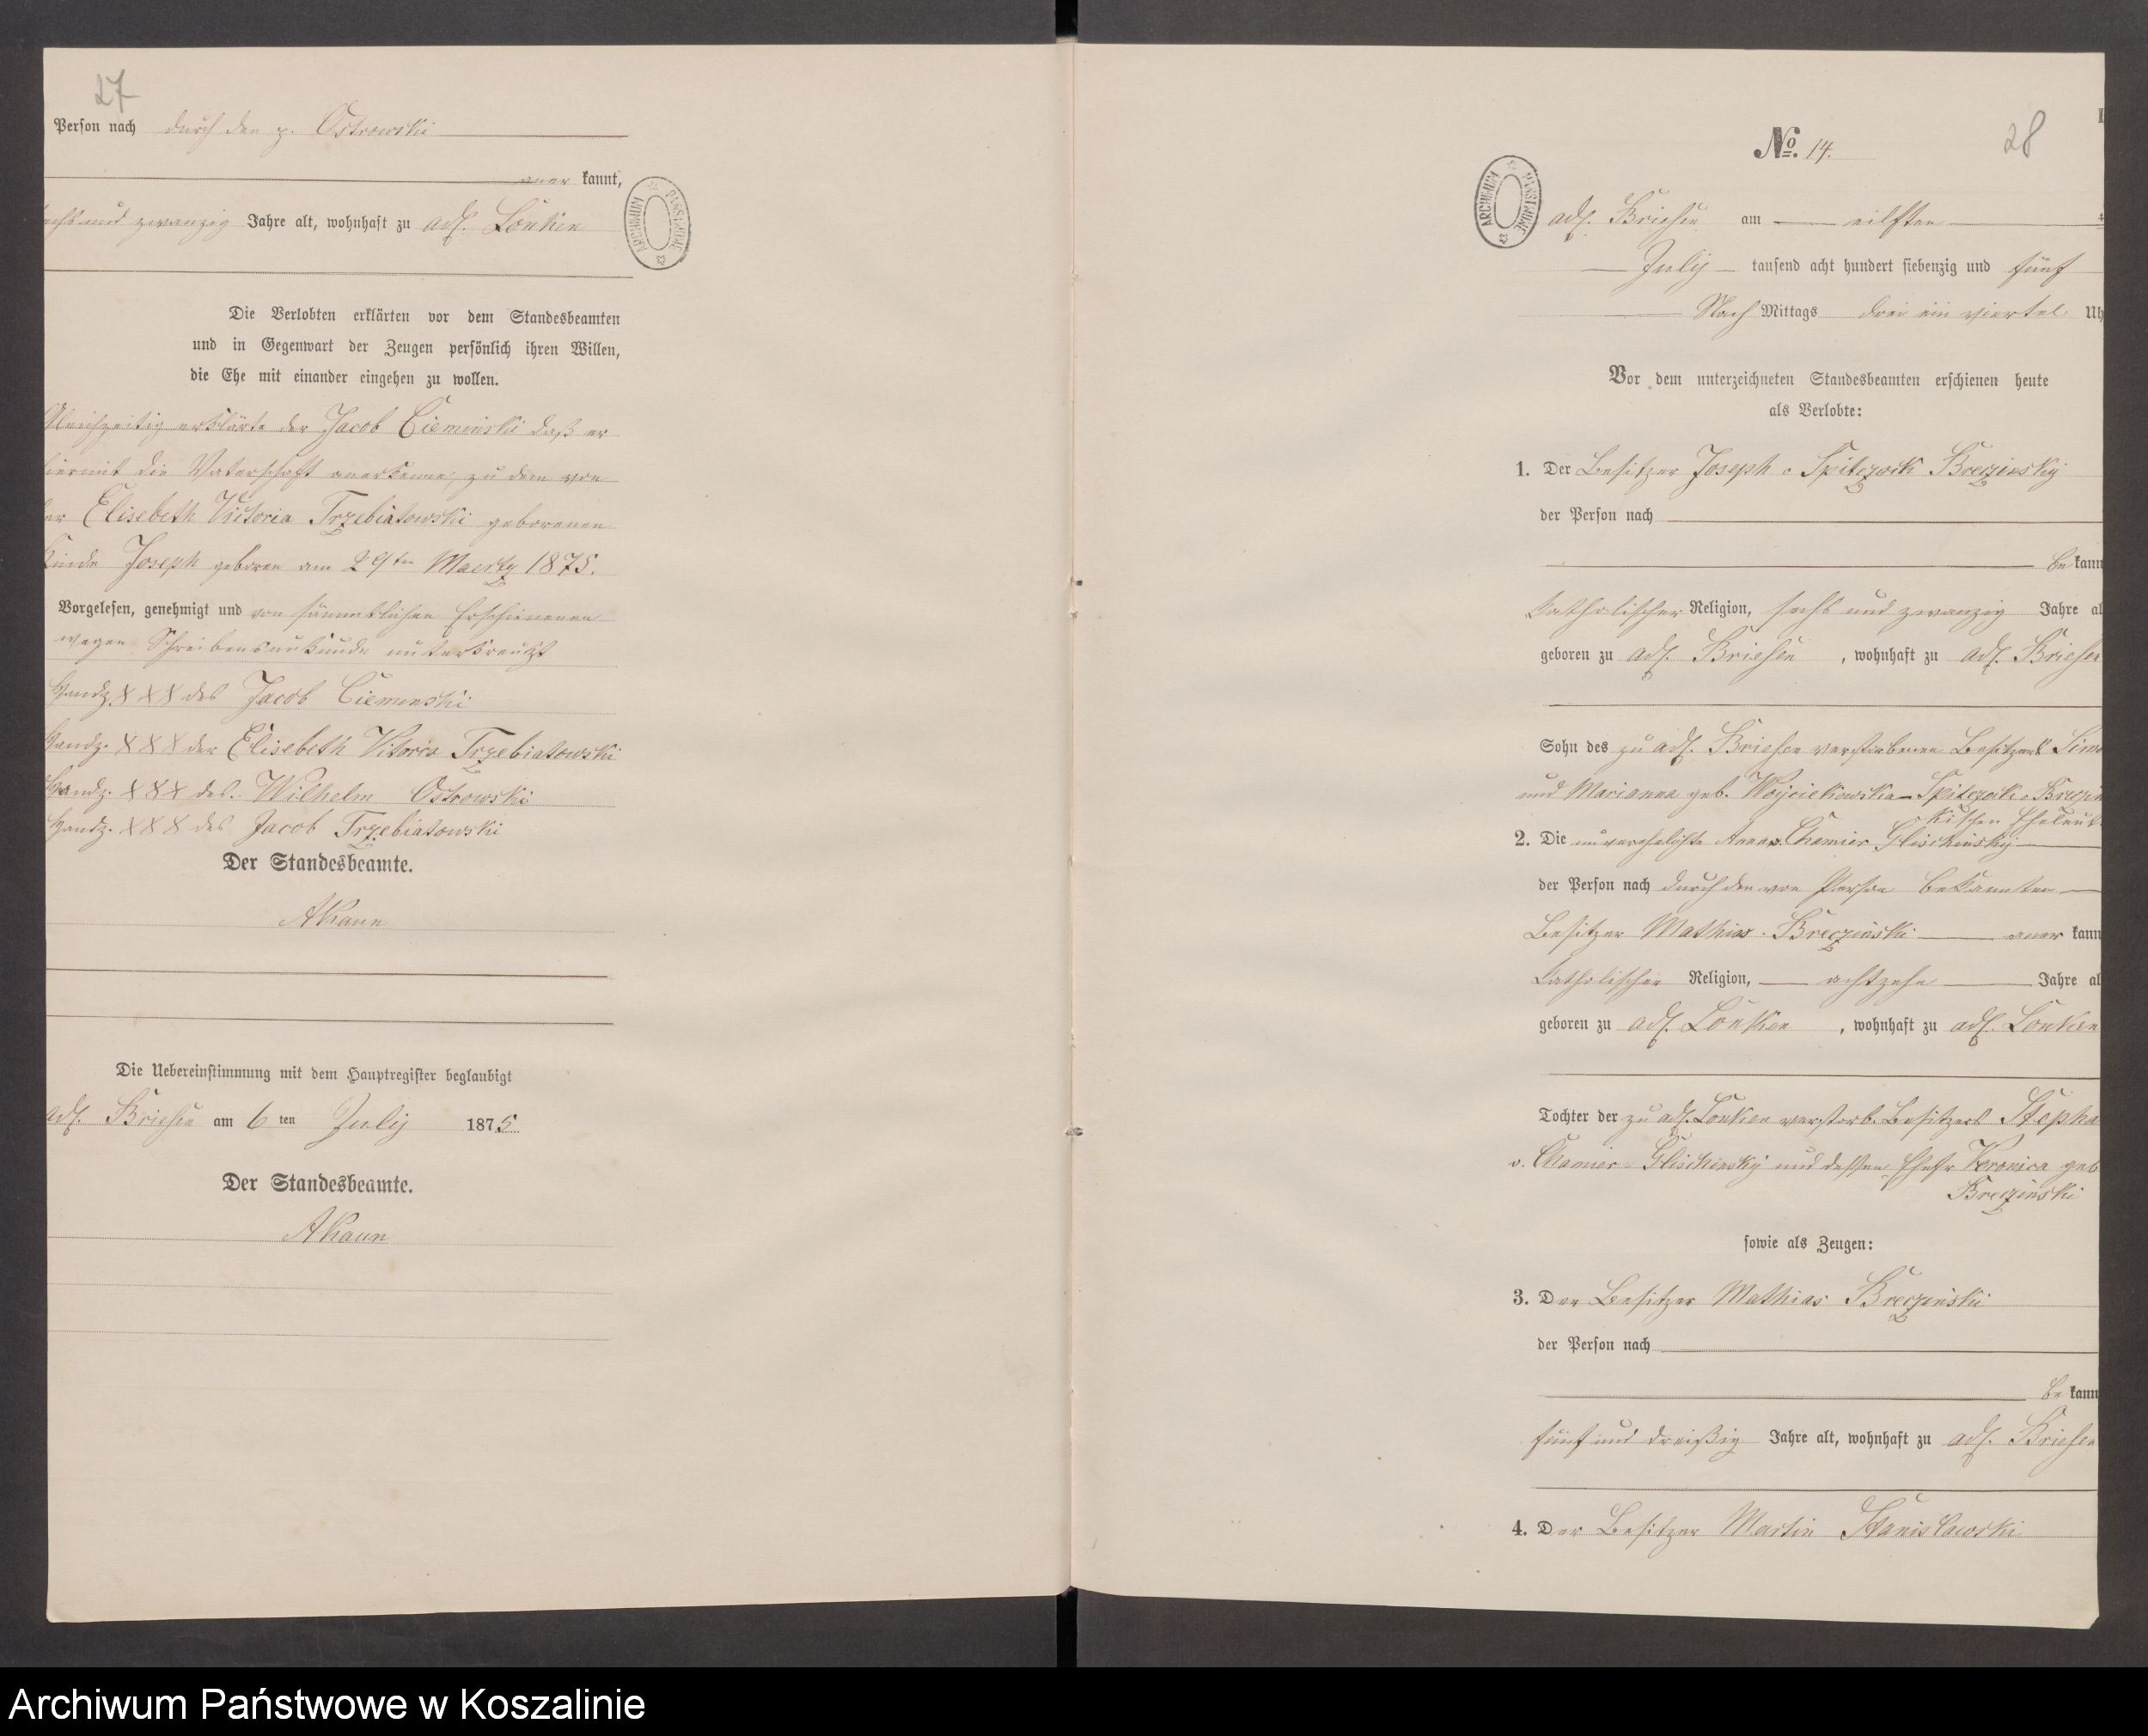 27
Person nach durch den p. Ostrowski
aner kannt,
sechs und zwanzig Jahre alt, wohnhaft zu adl. Lonken
ARCHIWUM PAŃSTWOWE
Die Verlobten erklärten vor dem Standesbeamten
und in Gegenwart der Zeugen persönlich ihren Willen,
die Ehe mit einander eingehen zu wollen.
Gleichzeitig erklärte der Jacob Cieminski daß er
hiermit die Vaterschaft anerkenne, zu dem von
der Elisebeth Victoria Trzebiatowski geborenen
Kinde Joseph geboren am 29ten Maerz 1875.
Vorgelesen, genehmigt und von sämmtlichen Erschienenen
wegen Schreibensunkunde unterkreuzt
Handz. XXX des Jacob Cieminski
Handz. XXX der Elisebeth Vitoria Trzebiatowski
Handz. XXX des Wilhelm Ostrowski
Handz. XXX des Jacob Trzebiatowski
Der Standesbeamte.
AKaun
Die Uebereinstimmung mit dem Hauptregister beglaubigt
adl. Briesen am 6 ten July 1875.
Der Standesbeamte.
AKaun
28
No. 14.
ARCHIWUM PAŃSTWOWE
adl. Briesen am eilften
July tausend acht hundert siebenzig und fünf
Nach Mittags drei ein viertel Uh
Vor dem unterzeichneten Standesbeamten erschienen heute
als Verlobte:
1. Der Besitzer Joseph v Spiczack Breczinsky
der Person nach
be kann
katholischer Religion, sechs und zwanzig Jahre al
geboren zu adl. Briesen, wohnhaft zu adl. Briesen
Sohn des zu adl. Briesen verstorbenen Besitzers Simo
und Marianna geb. Woyciekowska Spiczack v Breczin
kischen Eheleut
2. Die unverehelichte Anna v. Chamier Glischinsky
der Person nach durch den von Person bekannten
Besitzer Mathias Breczinski aner kann
katholischer Religion, achtzehn Jahre al
geboren zu adl. Lonken, wohnhaft zu adl. Lonken
Tochter der zu adl. Lonken verstorb. Besitzers Stepha
v. Chamier Glischinsky und dessen Ehefr Veronica geb
Breczinski
sowie als Zeugen:
3. Der Besitzer Mathias Breczinski
der Person nach
be kann
fünf und dreißig Jahre alt, wohnhaft zu adl. Briesen
4. Der Besitzer Martin Stanislawski
Archiwum Państwowe w Koszalinie